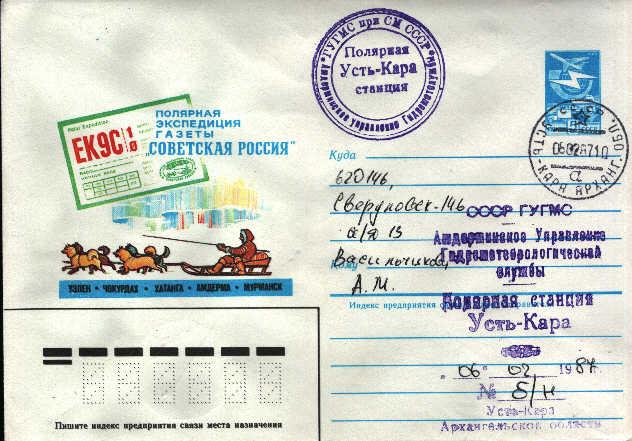 Polar Expedition
EK9C 1/0
ПОЛЯРНАЯ
ЭКСПЕДИЦИЯ
ГАЗЕТЫ
„СОВЕТСКАЯ РОССИЯ"
УЭЛЕН · ЧОКУРДАХ · ХАТАНГА · АМДЕРМА · МУРМАНСК
ГУГМС при СМ СССР
Амдерминское управление Гидрометслужбы
Полярная
Усть-Кара
станция
УСТЬ-КАРА АРХАНГ. ОБЛ.
06 02 87 10
а
Куда
620146,
Свердловск-146
а/я 13
Кому
Васильчикова,
А.М.
СССР ГУГМС
Амдерминское Управление
Гидрометеорологической
службы
Индекс предприятия
Полярная станция
Усть-Кара
"06" 02 1987
№ б/н
Усть-Кара
Архангельской области
Пишите индекс предприятия связи места назначения